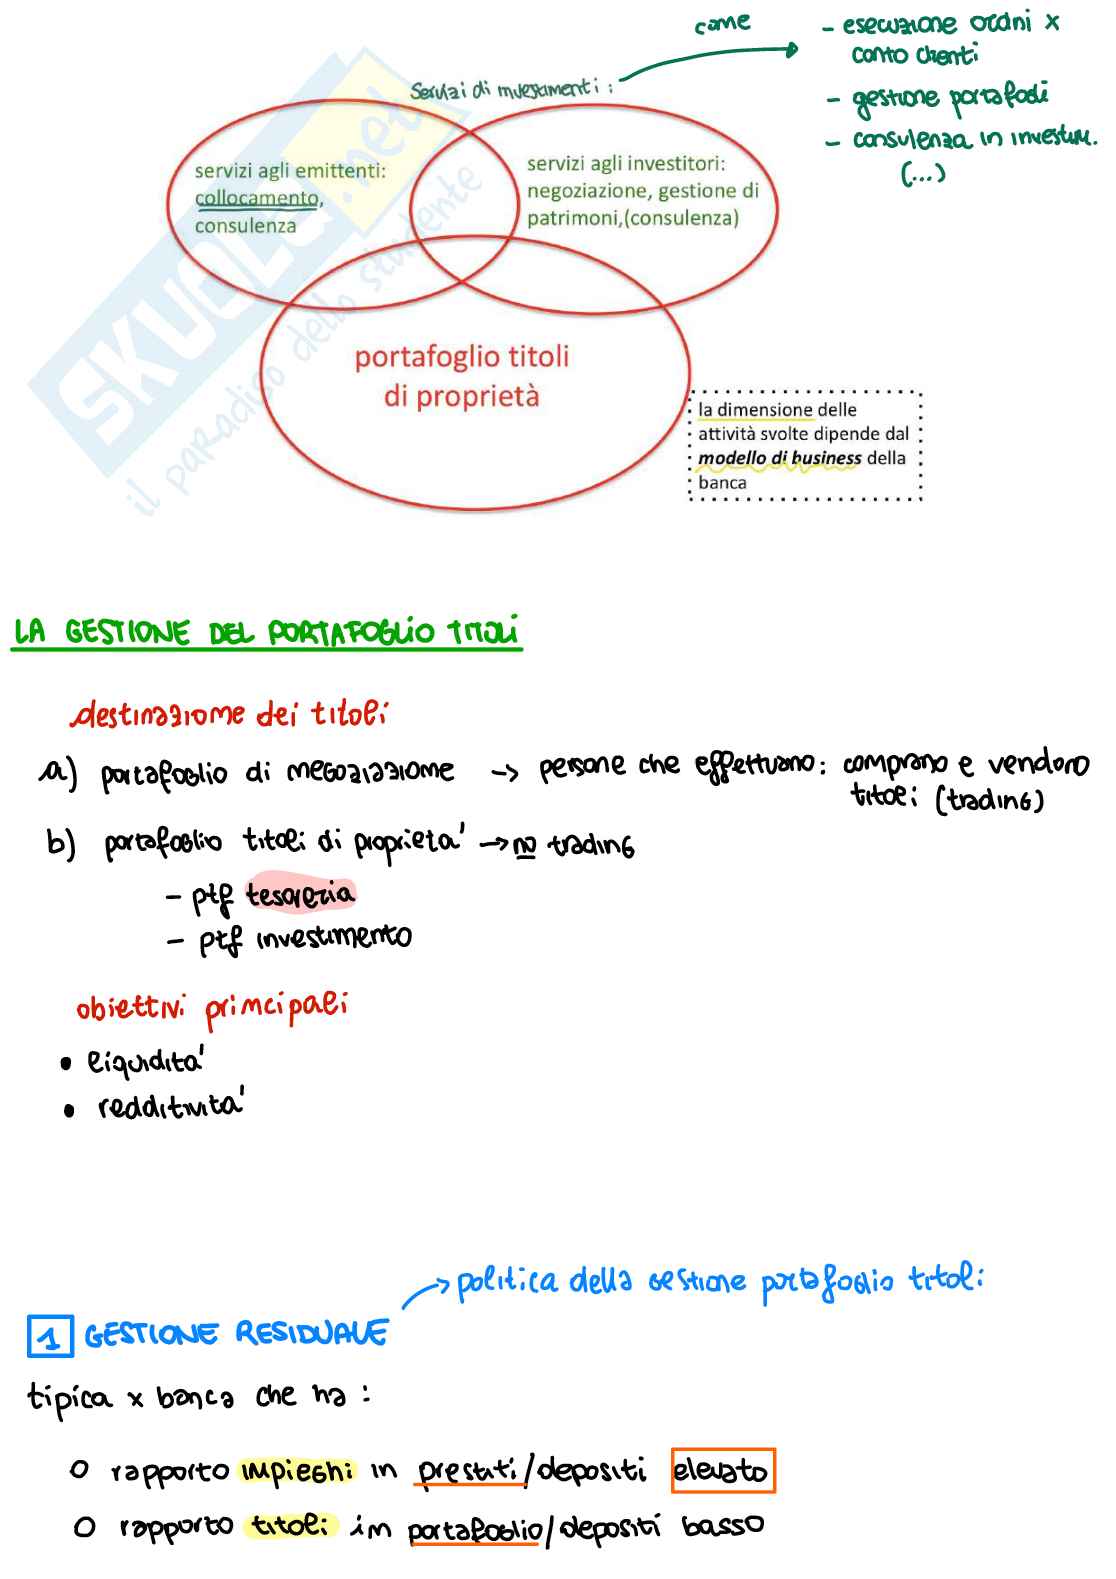 come
- esecuzione ordini x
conto clienti
- gestione portafogli
- consulenza in investim.
(...)
Servizi di investimenti :
servizi agli emittenti:
collocamento,
consulenza
servizi agli investitori:
negoziazione, gestione di
patrimoni,(consulenza)
portafoglio titoli
di proprietà
la dimensione delle
attività svolte dipende dal
modello di business della
banca
SKUOLA.net
il paradiso dello studente
LA GESTIONE DEL PORTAFOGLIO TITOLI
destinazione dei titoli
a) portafoglio di negoziazione -> persone che effettuano: comprano e vendono
titoli (trading)
b) portafoglio titoli di proprietà -> no trading
- ptf tesoreria
- ptf investimento
obiettivi principali
• liquidità
• redditività
-> politica della gestione portafoglio titoli
1 GESTIONE RESIDUALE
tipica x banca che ha :
O rapporto impieghi in prestiti/depositi elevato
O rapporto titoli in portafoglio/depositi basso